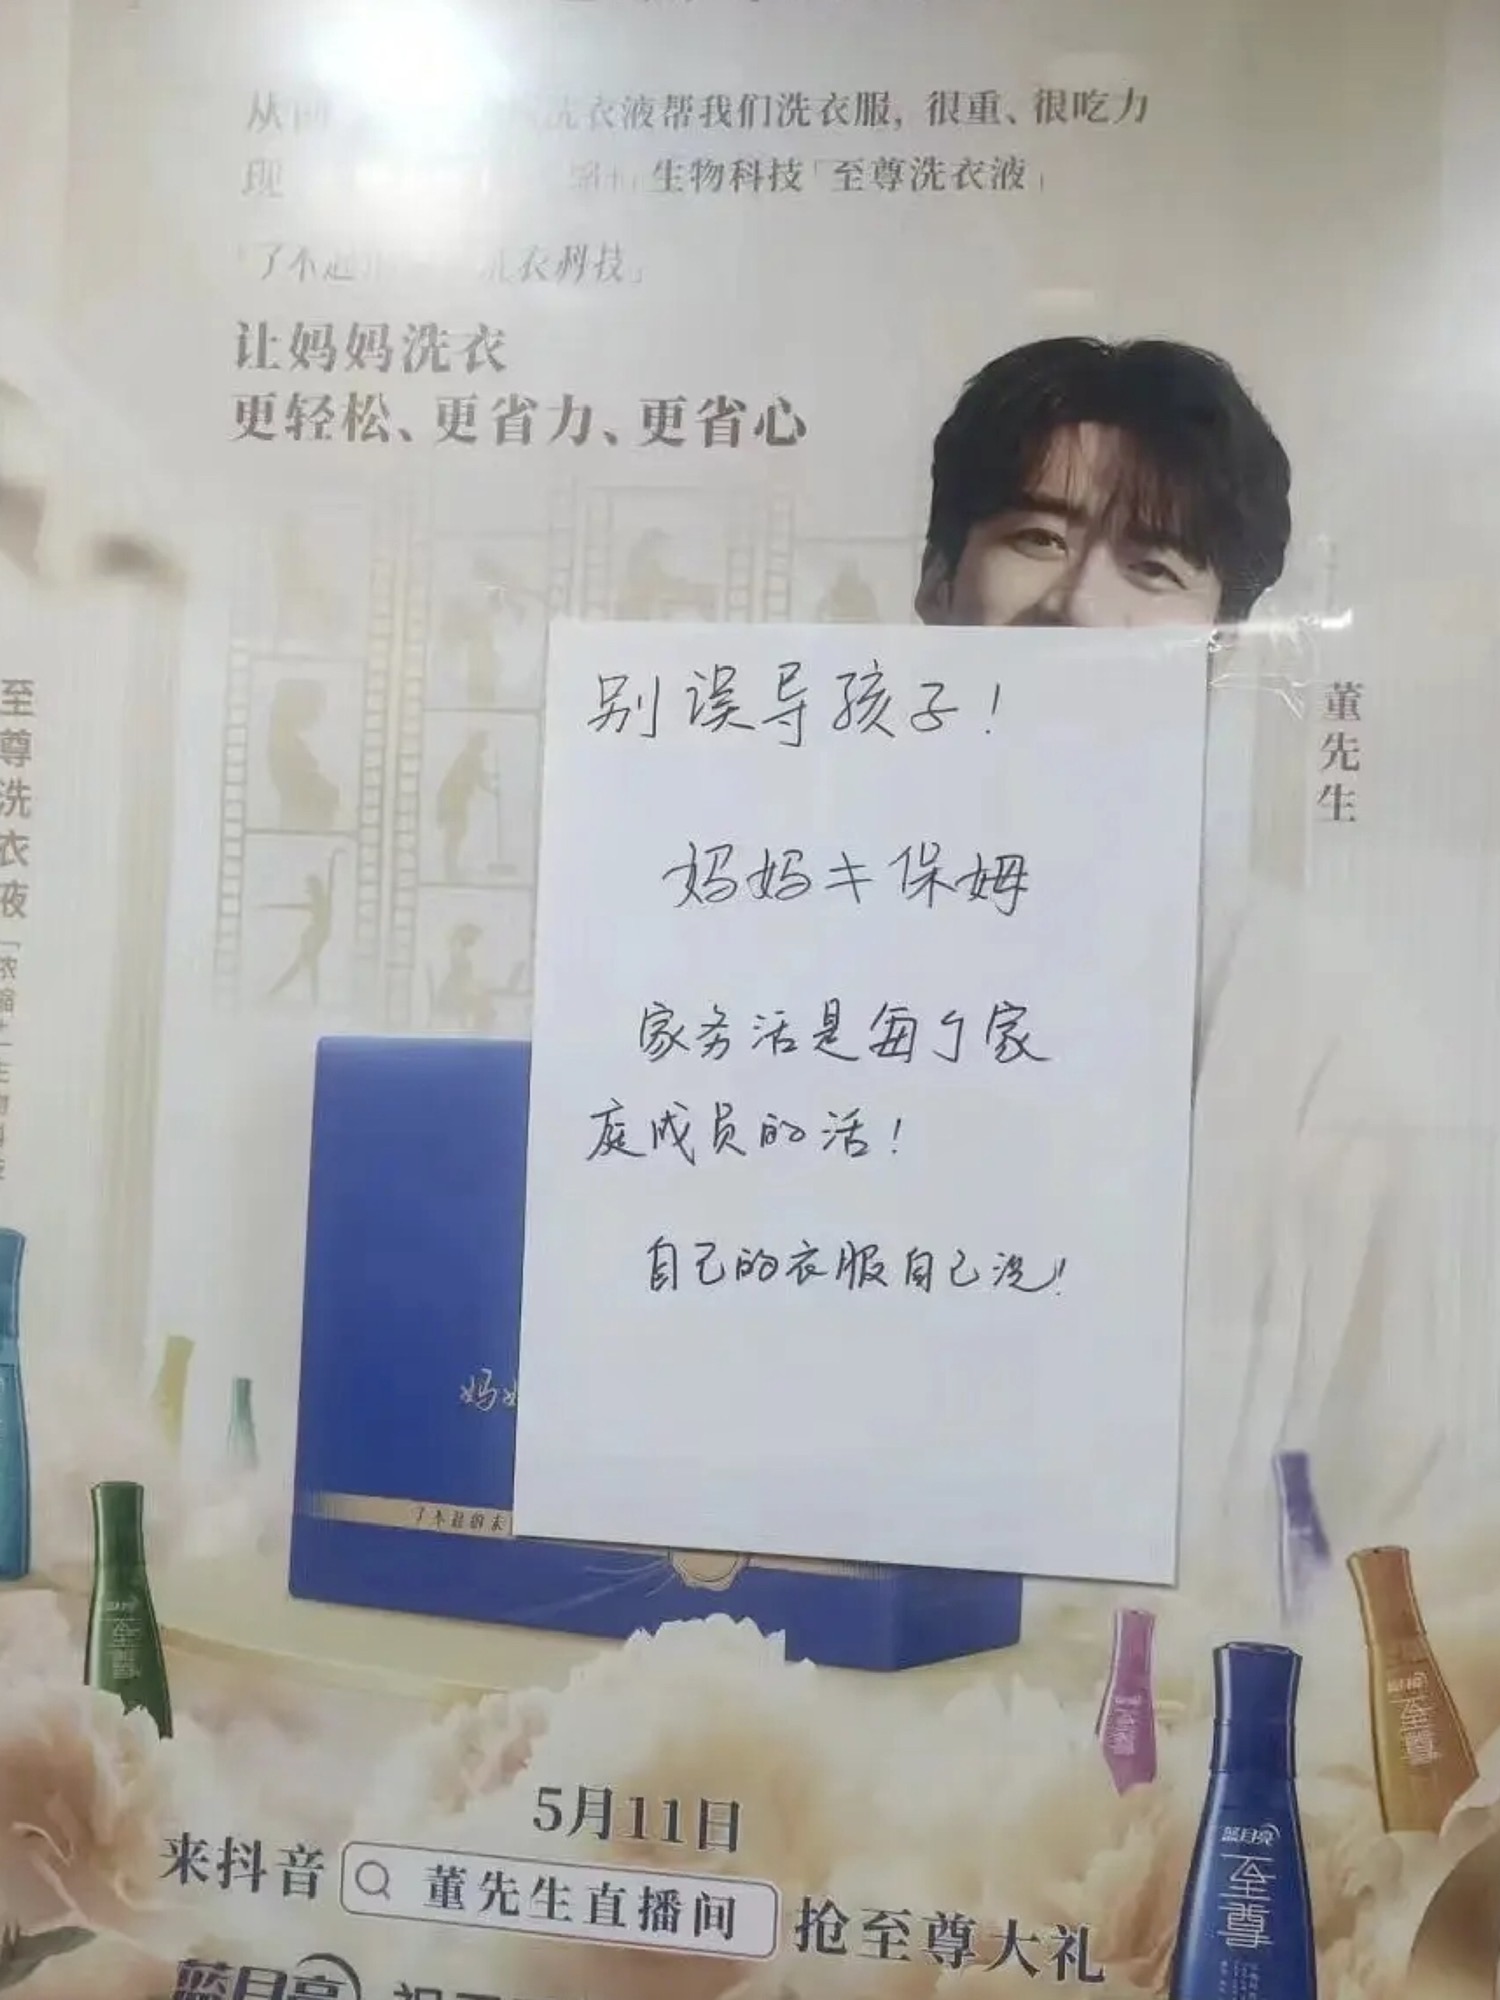 洗衣液帮我们洗衣服，很重、很吃力
现
生物科技「至尊洗衣液」
「了不起
洗衣科技」
让妈妈洗衣
更轻松、更省力、更省心
别误导孩子！
妈妈≠保姆
家务活是每个家
庭成员的活！
自己的衣服自己洗！
董先生
至尊洗衣液
妈妈
了不起的未
5月11日
来抖音 董先生直播间 抢至尊大礼
蓝月亮
至尊
蓝月亮